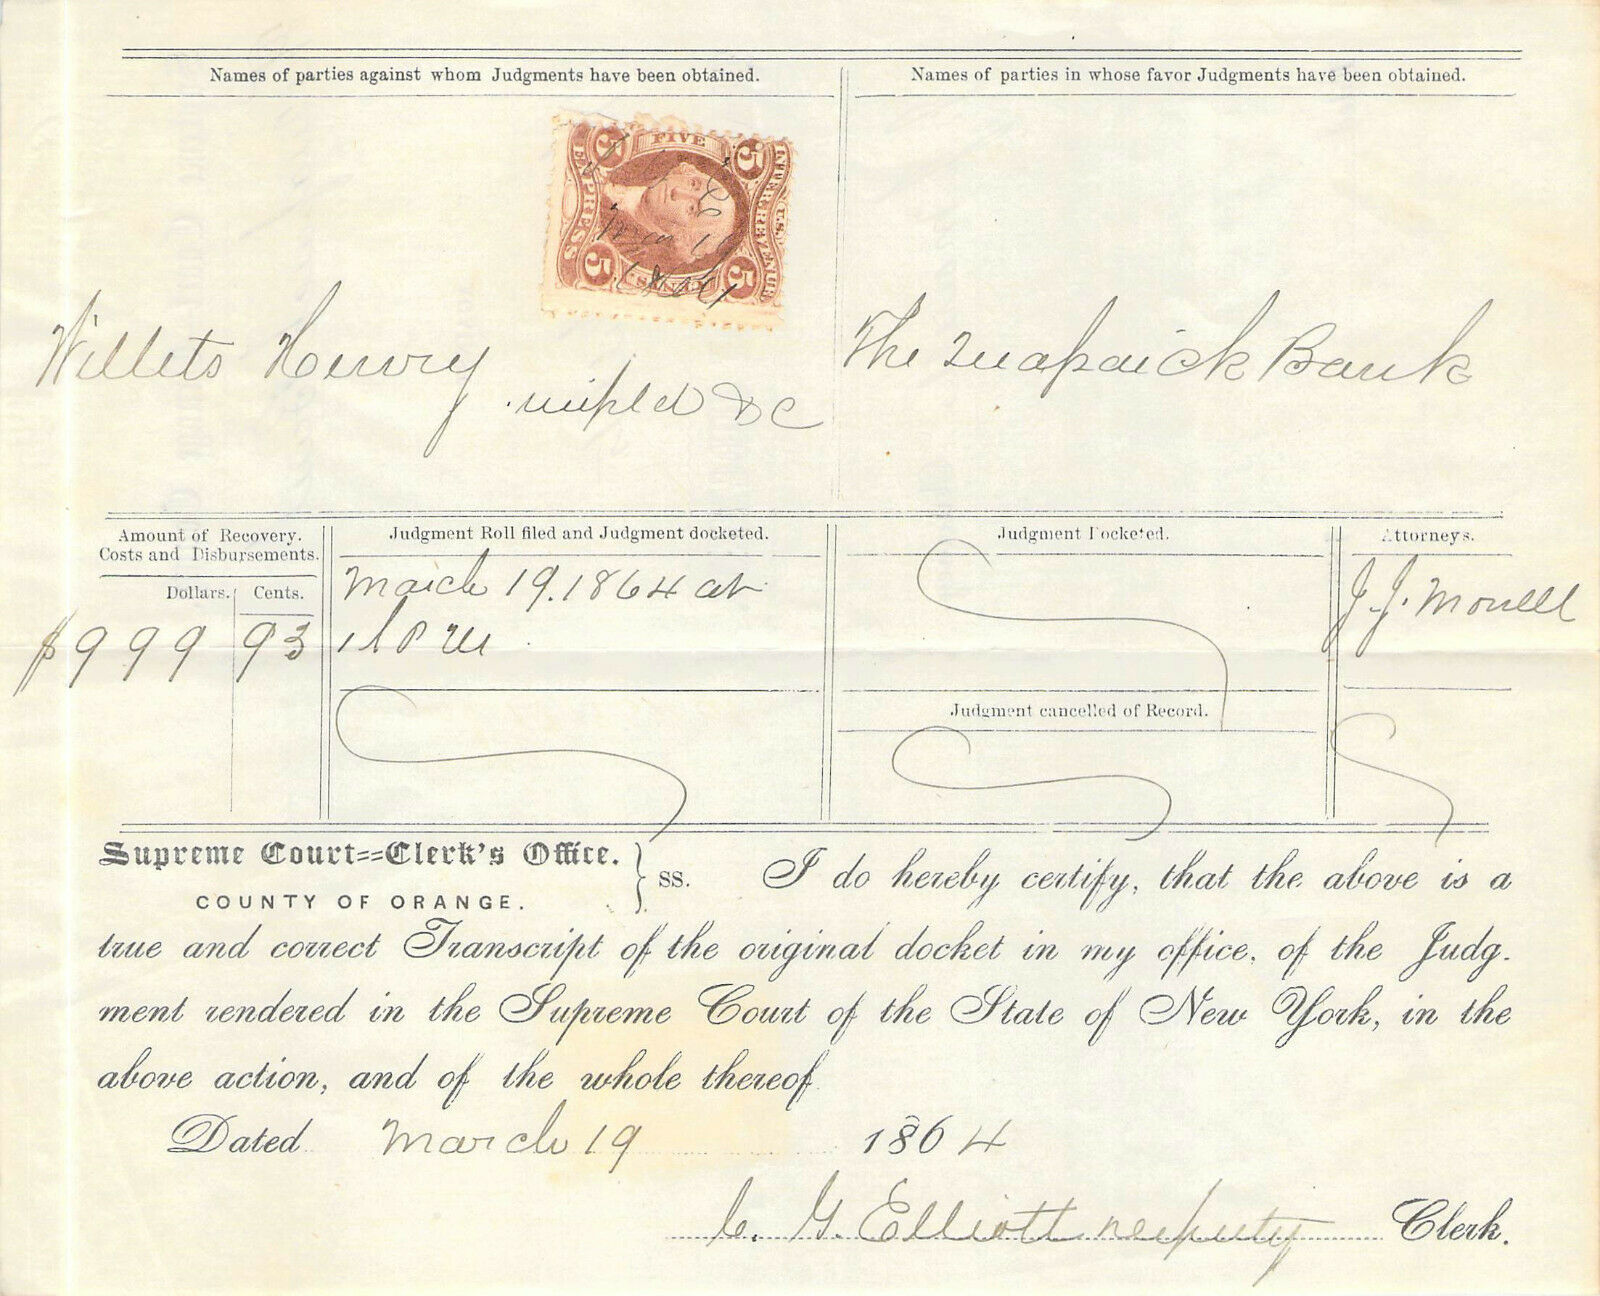 Names of parties against whom Judgments have been obtained.
Names of parties in whose favor Judgments have been obtained.
FIVE
5 5
EXPRESS
U.S. INTER. REVENUE
5 5
CENTS
Willets Henry
impld &C
The Quassaick Bank
Amount of Recovery.
Costs and Disbursements.
Dollars. Cents.
$999 93
Judgment Roll filed and Judgment docketed.
March 19. 1864 at
P M
Judgment Docketed.
Judgment cancelled of Record.
Attorneys.
J. J. Monell
Supreme Court==Clerk's Office.
COUNTY OF ORANGE.
ss. I do hereby certify, that the above is a
true and correct Transcript of the original docket in my office, of the Judg-
ment rendered in the Supreme Court of the State of New York, in the
above action, and of the whole thereof.
Dated March 19 1864
C. G. Elliott Deputy Clerk.